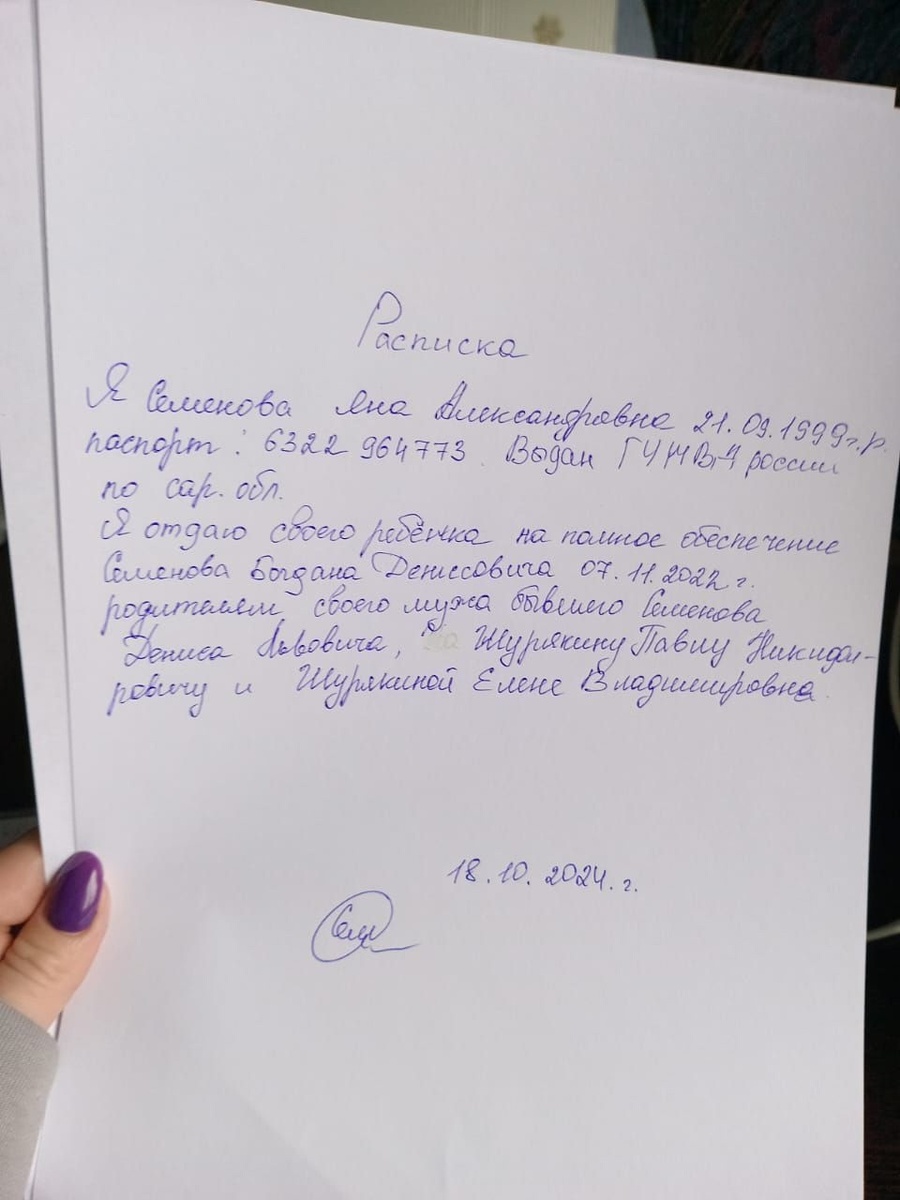 Расписка
Я Семенова Яна Александровна 21.09.1999г.р.
паспорт: 6322 964773. Выдан ГУМВД россии
по сар. обл.
Я отдаю своего ребёнка на полное обеспечение
Семенова Богдана Денисовича 07.11.2022 г.
родителям своего мужа бывшего Семенова
Дениса Львовича, Шурякину Павлу
и Шурякиной Елене Владимировне.
18.10.2024.г.
Сем